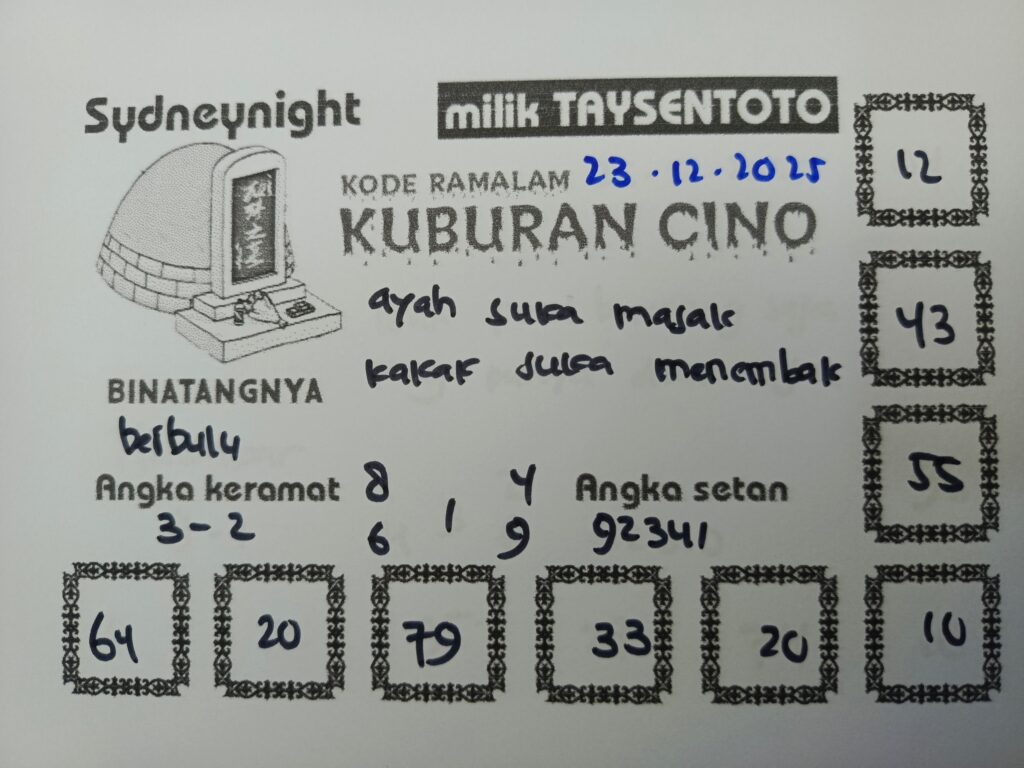 Sydneynight
milik TAYSENTOTO
KODE RAMALAM 23.12.2025
KUBURAN CINO
ayah suka masak
kakak suka menembak
BINATANGNYA
berbulu
Angka keramat
3-2
8 4
1
6 9
Angka setan
92341
12
43
55
64 20 79 33 20 10